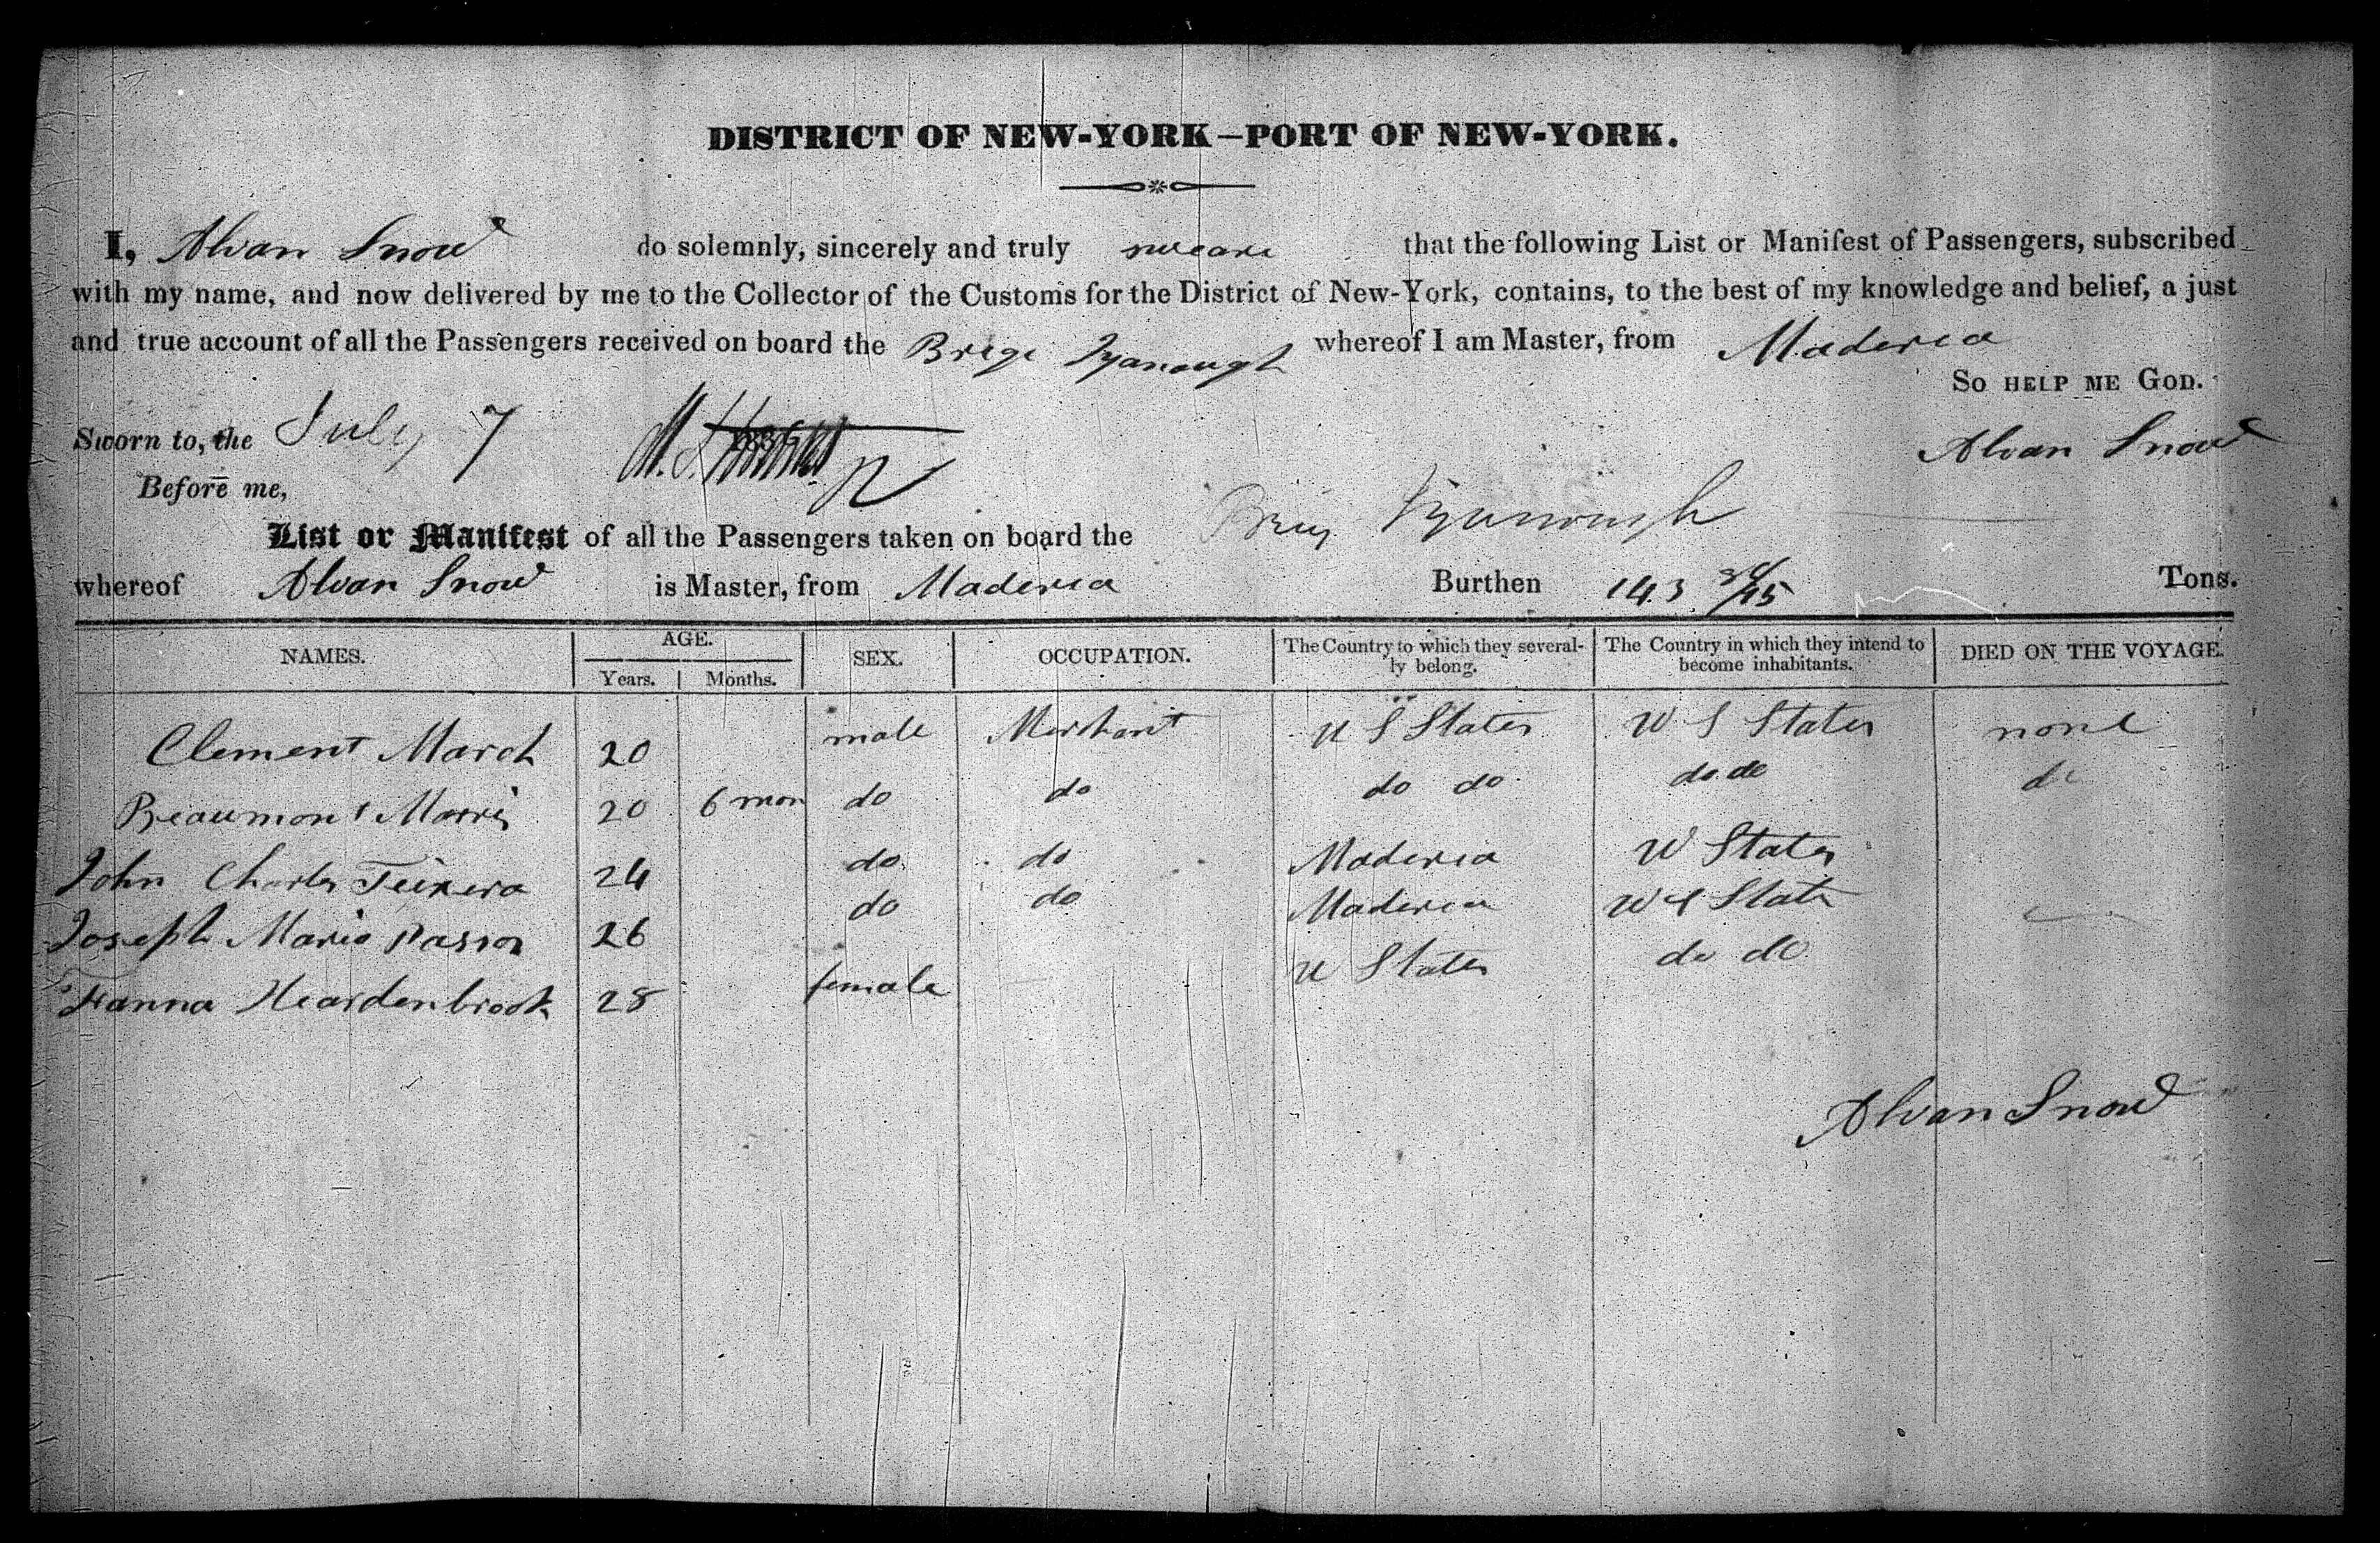 DISTRICT OF NEW-YORK—PORT OF NEW-YORK.
I, Alvan Snow do solemnly, sincerely and truly sweare that the following List or Manifest of Passengers, subscribed
with my name, and now delivered by me to the Collector of the Customs for the District of New-York, contains, to the best of my knowledge and belief, a just
and true account of all the Passengers received on board the Brige Iyanough whereof I am Master, from Maderea
So HELP ME GOD.
Sworn to, the July 7 Alvan Snow
Before me,
List or Manifest of all the Passengers taken on board the Brig Iyanough
whereof Alvan Snow is Master, from Maderea Burthen 143 /95 Tons.
NAMES. AGE. Years. Months. SEX. OCCUPATION. The Country to which they severally belong. The Country in which they intend to become inhabitants. DIED ON THE VOYAGE.
Clement March 20 male Merchant U S States U S States none
Beaumont Morris 20 6 mon do do do do do do do
John Charles Teixera 24 do do Maderea U States
Joseph Maria 26 do do Maderea U S State
Hanna Heardenbrook 28 female U States do do
Alvan Snow